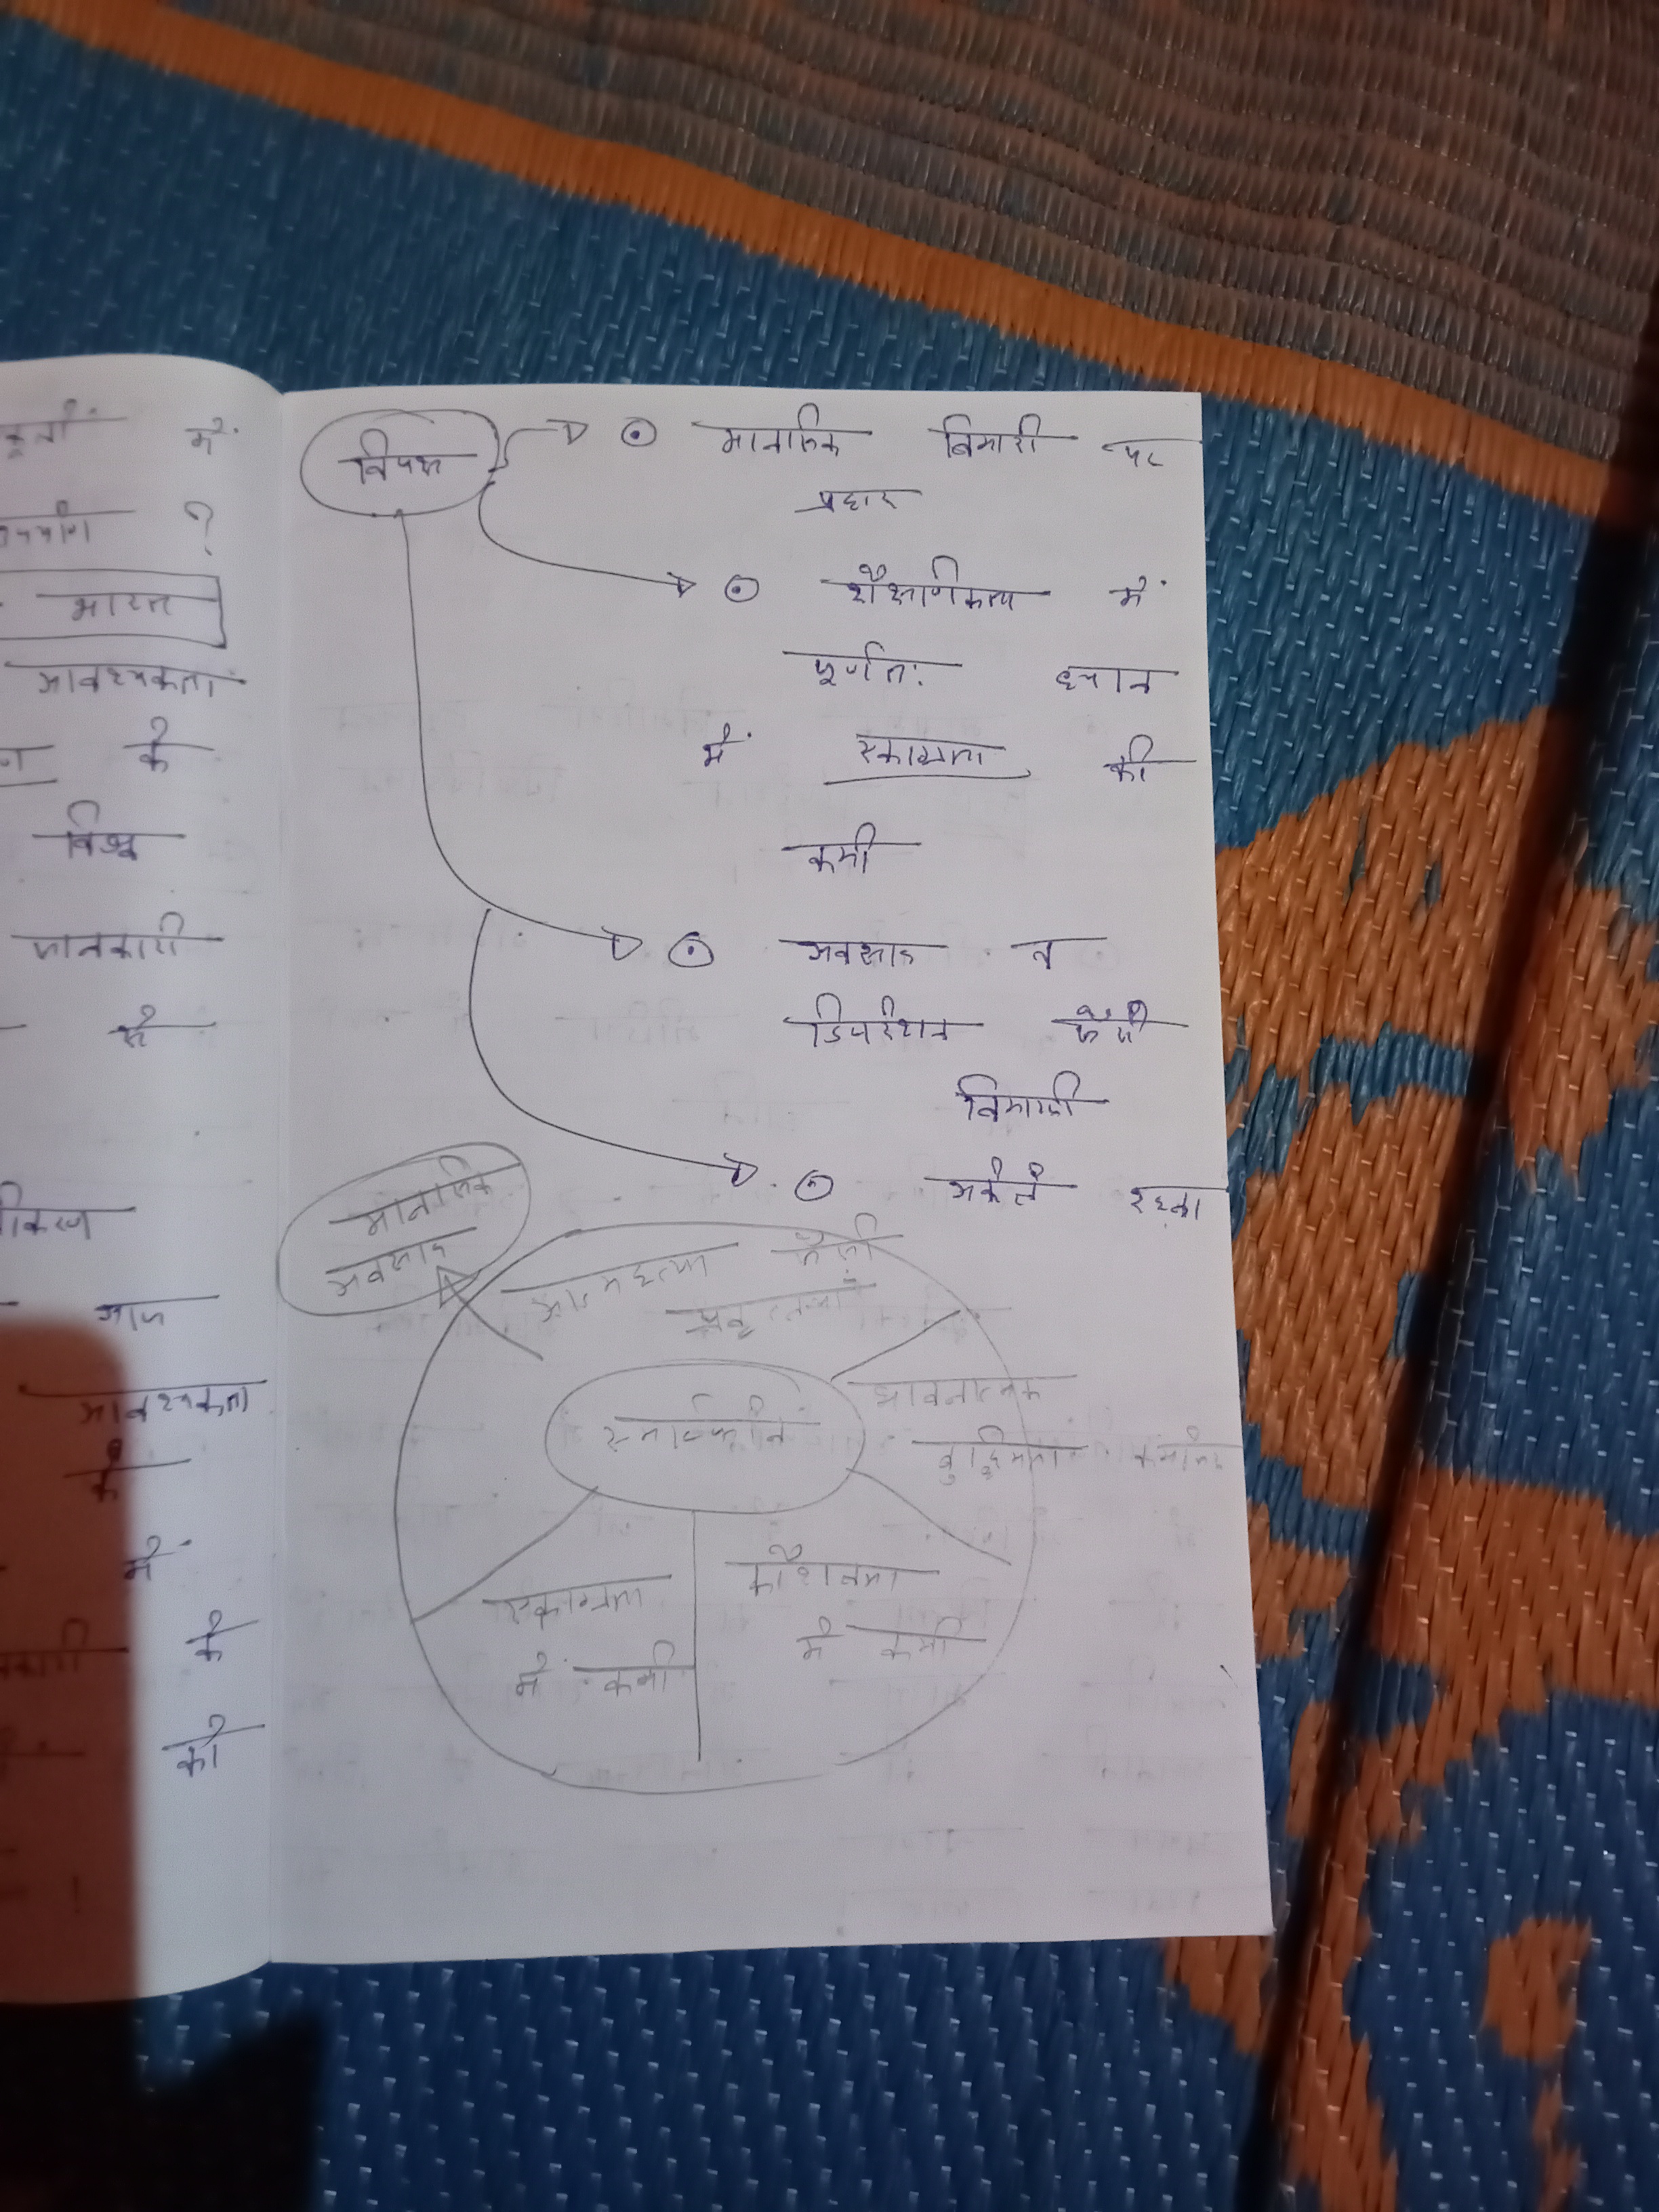 में
?
भारत
आवश्यकता
के
जानकारी
से
आज
आवश्यकता
के
में
के
को
विपक्ष
मानसिक बिमारी पर
प्रहार
शैक्षणिकता में
पूर्णतः ध्यान
में एकाग्रता की
कमी
अवसाद व
डिपरेशन जैसी
बिमारी
अकेले रहना
मानसिक
अवसाद
आत्महत्या जैसी
स्मार्टफोन
भावनात्मक
बुद्धिमता
एकाग्रता
में कमी
कौशलता
में कमी